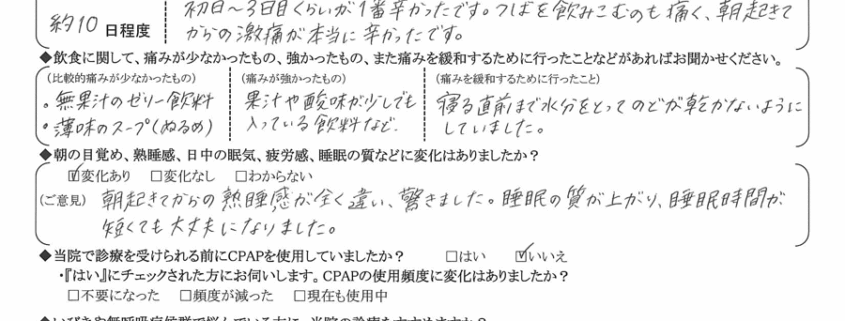 約10日程度
初日～3日目くらいが1番辛かったです。つばを飲みこむのも痛く、朝起きて
からの激痛が本当に辛かったです。
◆飲食に関して、痛みが少なかったもの、強かったもの、また痛みを緩和するために行ったことなどがあればお聞かせください。
(比較的痛みが少なかったもの)
・無果汁のゼリー飲料
・薄味のスープ(ぬるめ)
(痛みが強かったもの)
果汁や酸味が少しでも
入っている飲料など.
(痛みを緩和するために行ったこと)
寝る直前まで水分をとってのどが乾かないように
していました。
◆朝の目覚め、熟睡感、日中の眠気、疲労感、睡眠の質などに変化はありましたか？
☑変化あり □変化なし □わからない
(ご意見) 朝起きてからの熟睡感が全く違い、驚きました。睡眠の質が上がり、睡眠時間が
短くても大丈夫になりました。
◆当院で診療を受けられる前にCPAPを使用していましたか？ □はい ☑いいえ
・『はい』にチェックされた方にお伺いします。CPAPの使用頻度に変化はありましたか？
□不要になった □頻度が減った □現在も使用中
◆いびきや無呼吸症候群で悩んでいる方に、当院の診療をすすめますか？